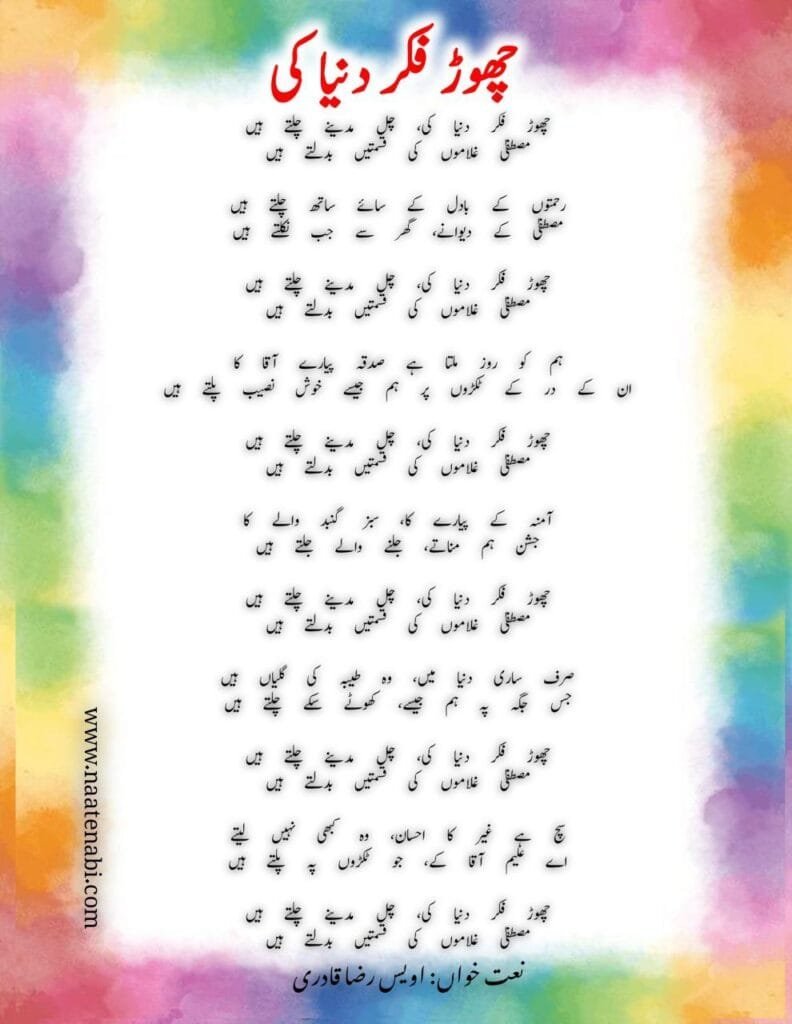 چھوڑ فکر دنیا کی
چھوڑ فکر دنیا کی، چل مدینے چلتے ہیں
مصطفیٰ غلاموں کی قسمتیں بدلتے ہیں
رحمتوں کے بادل کے سائے ساتھ چلتے ہیں
مصطفیٰ کے دیوانے، گھر سے جب نکلتے ہیں
چھوڑ فکر دنیا کی، چل مدینے چلتے ہیں
مصطفیٰ غلاموں کی قسمتیں بدلتے ہیں
ہم کو روز ملتا ہے صدقہ پیارے آقا کا
ان کے در کے ٹکڑوں پر ہم جیسے خوش نصیب پلتے ہیں
چھوڑ فکر دنیا کی، چل مدینے چلتے ہیں
مصطفیٰ غلاموں کی قسمتیں بدلتے ہیں
آمنہ کے پیارے کا، سبز گنبد والے کا
جشن ہم مناتے، جلنے والے جلتے ہیں
چھوڑ فکر دنیا کی، چل مدینے چلتے ہیں
مصطفیٰ غلاموں کی قسمتیں بدلتے ہیں
صرف ساری دنیا میں، وہ طیبہ کی گلیاں ہیں
جس جگہ پہ ہم جیسے، کھوٹے سکے چلتے ہیں
چھوڑ فکر دنیا کی، چل مدینے چلتے ہیں
مصطفیٰ غلاموں کی قسمتیں بدلتے ہیں
سچ ہے غیر کا احسان، وہ کبھی نہیں لیتے
اے علیم آقا کے، جو ٹکڑوں پہ پلتے ہیں
چھوڑ فکر دنیا کی، چل مدینے چلتے ہیں
مصطفیٰ غلاموں کی قسمتیں بدلتے ہیں
نعت خواں: اویس رضا قادری
www.naatenabi.com